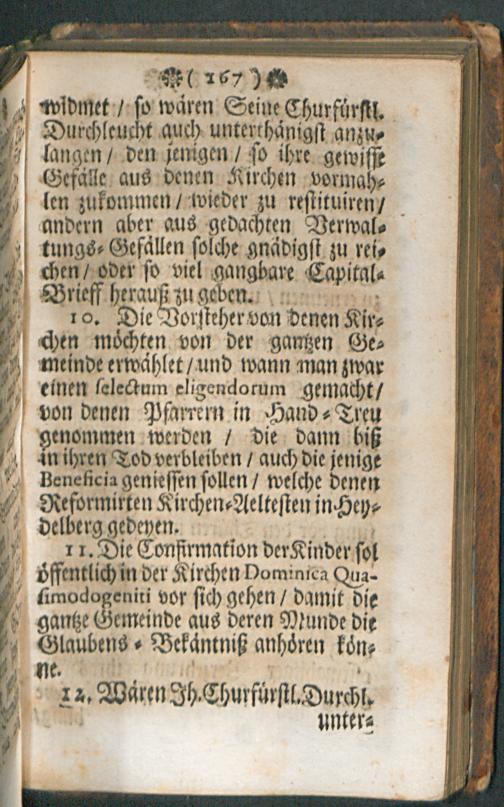 ( 167 )
widmet / so wären Seine Churfürstl.
Durchleucht auch unterthänigst anzu-
langen / den jenigen / so ihre gewisse
Gefälle aus denen Kirchen vormah-
len zukommen / wieder zu restituiren /
andern aber aus gedachten Verwal-
tungs-Gefällen solche gnädigst zu rei-
chen / oder so viel gangbare Capital-
Brieff herauß zu geben.
10. Die Vorsteher von denen Kir-
chen möchten von der gantzen Ge-
meinde erwählet / und wann man zwar
einen selectum eligendorum gemacht /
von denen Pfarrern in Hand-Treu
genommen werden / die dann biß
in ihren Tod verbleiben / auch die jenige
Beneficia geniessen sollen / welche denen
Reformirten Kirchen-Aeltesten in Hey-
delberg gedeyen.
11. Die Confirmation der Kinder sol
öffentlich in der Kirchen Dominica Qua-
simodogeniti vor sich gehen / damit die
gantze Gemeinde aus deren Munde die
Glaubens-Bekäntniß anhören kön-
ne.
12. Wären Ih. Churfürstl. Durchl.
unter-